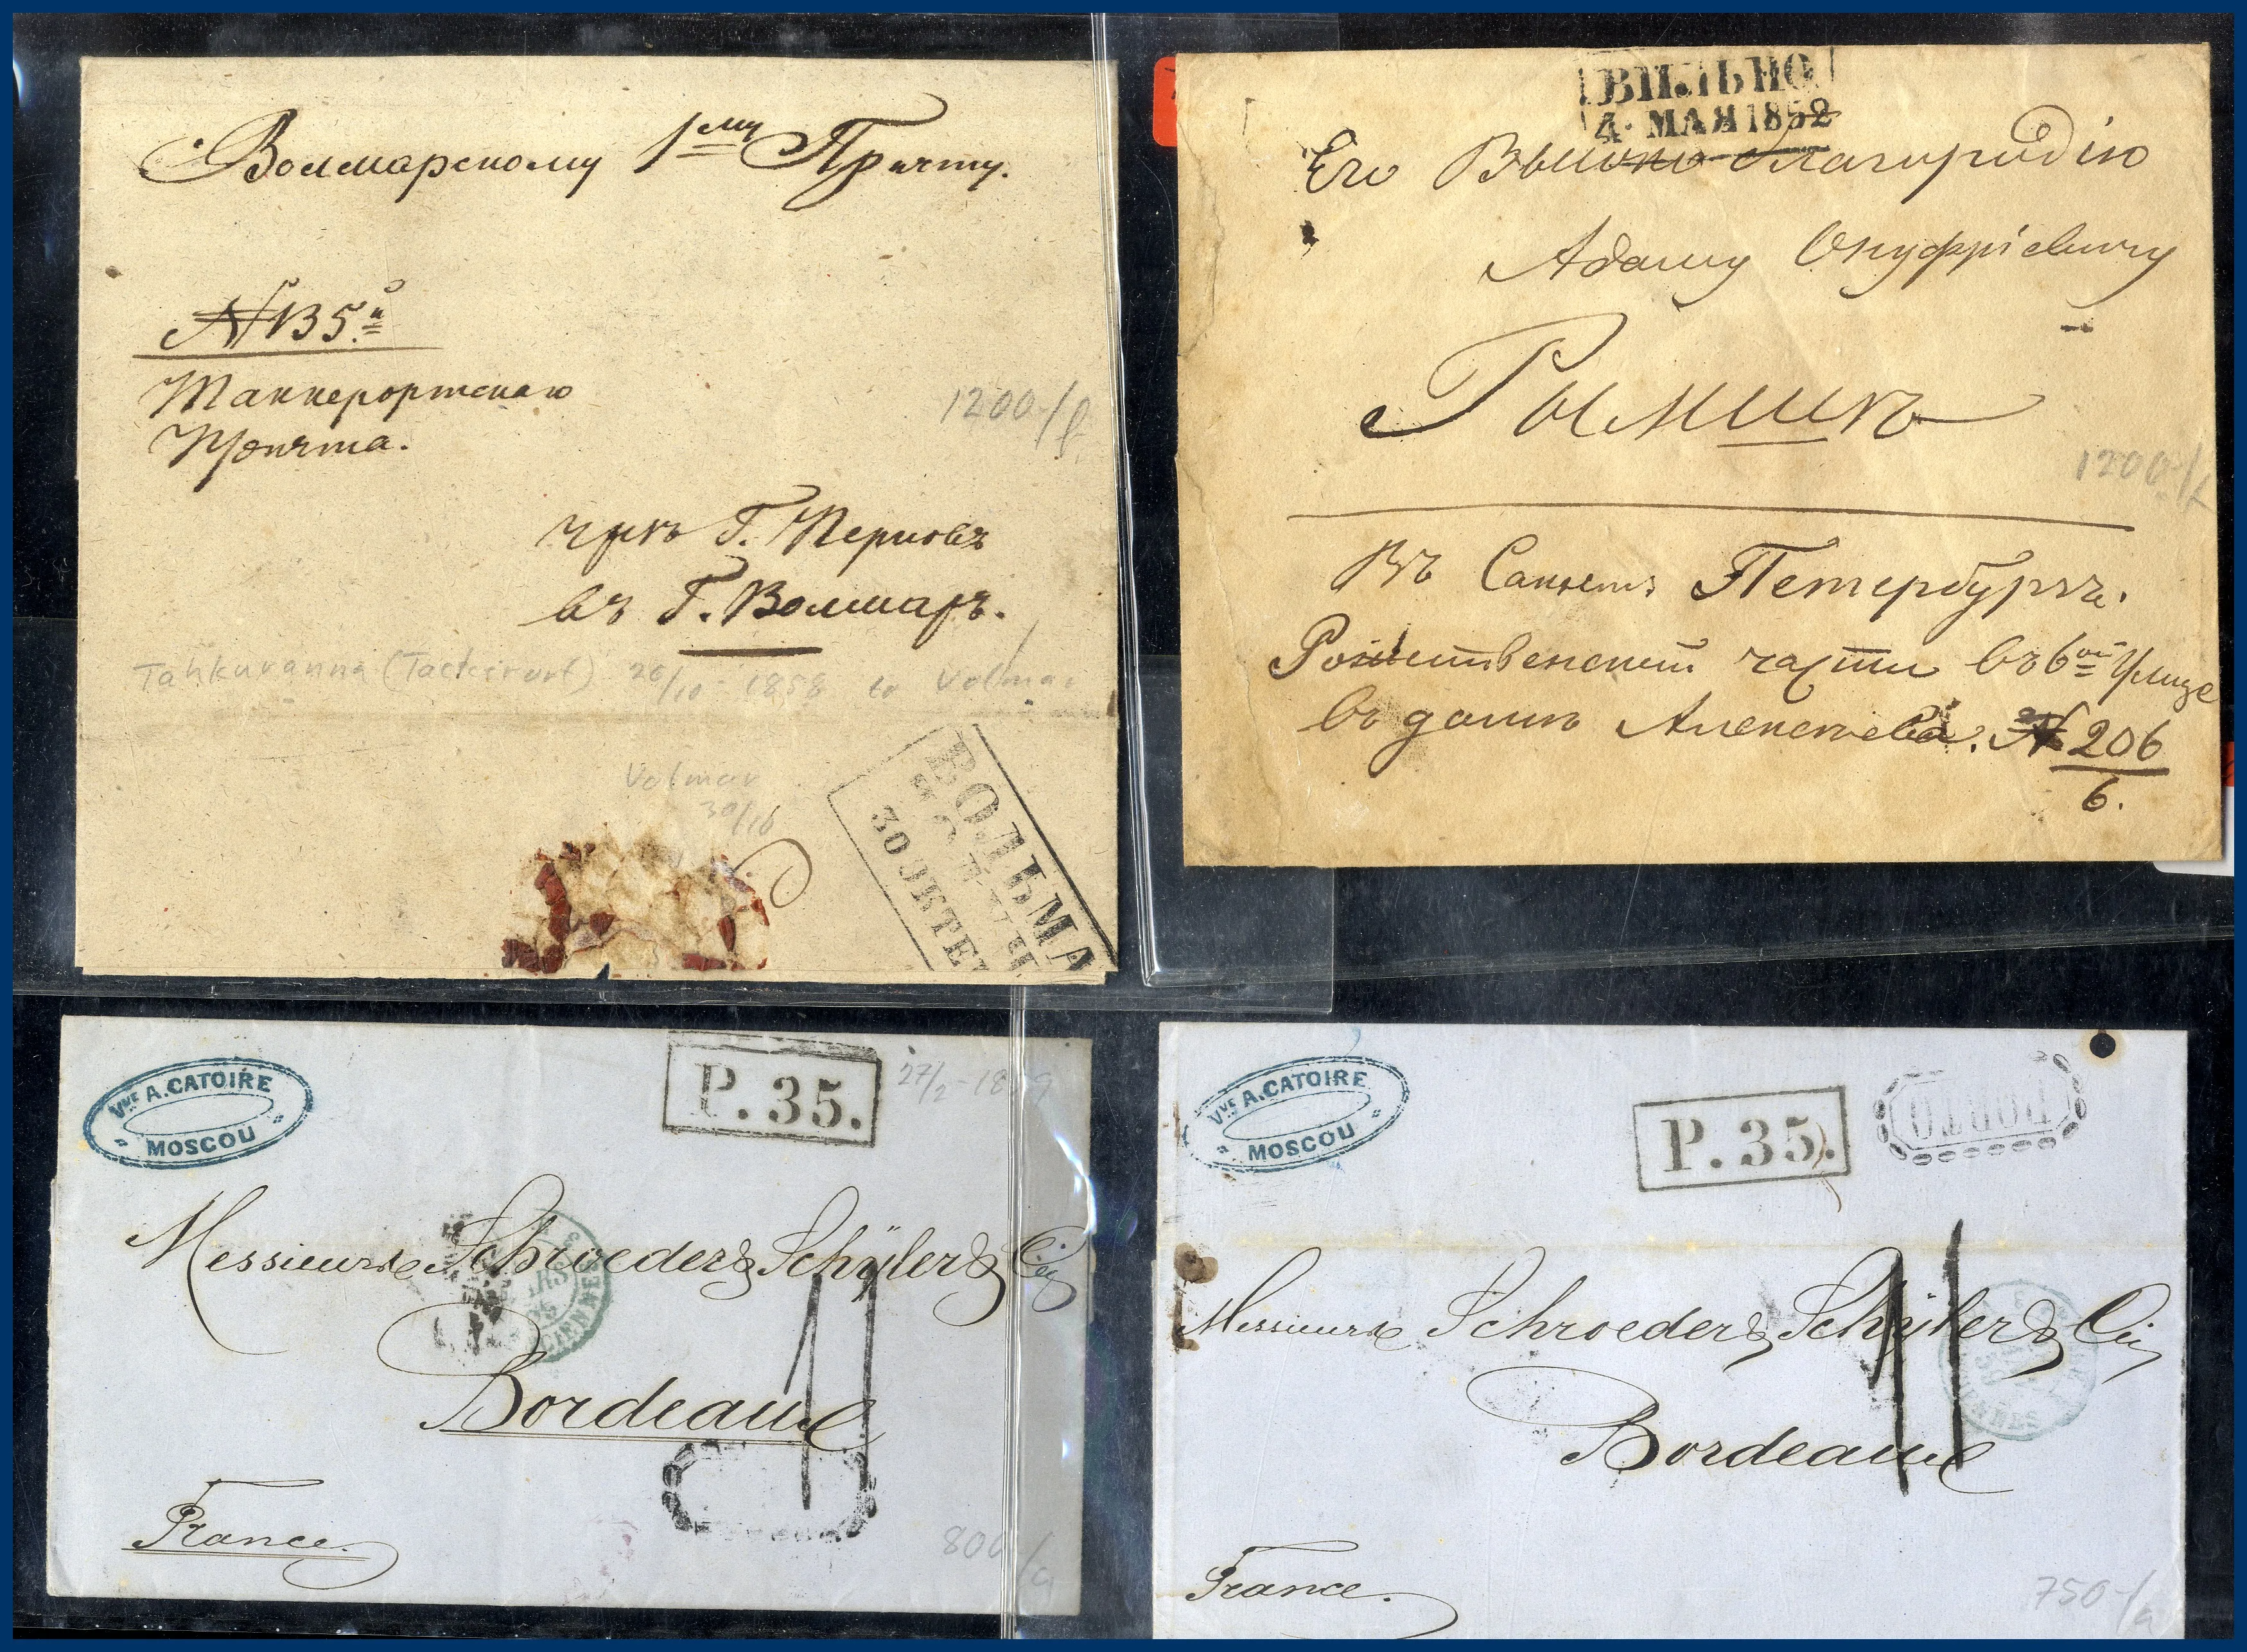 Волмарскому 1му Причту.
№ 135й
Таккерортскаго
Причта.
1200/
чрезъ Г. Перновъ
въ Г. Волмаръ.
Tahkuranna (Tackerort) 26/10-1858 to Volmar
Volmar
30/10
ВОЛЬМА
30 ОКТЕ
ВИЛЬНО
4. МАЯ 1852
Его Высоко благородію
Адаму Онуфріевичу
1200/
Въ Санктъ Петербургъ.
Рождественской части въ 6ой Улице
въ домъ Алексеева. № 206
6.
VVE A. CATOIRE
MOSCOU
P. 35.
27/2-1859
Messieurs Schroeder & Schÿler & Cie
Bordeaux
France.
800/
VVE A. CATOIRE
MOSCOU
P. 35.
PORTO
Messieurs Schroeder & Schÿler & Cie
Bordeaux
France.
750/